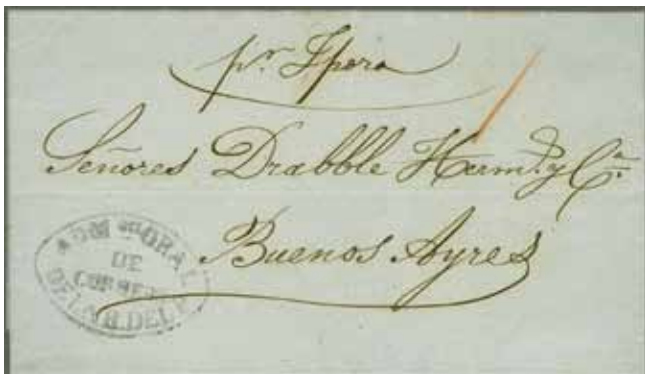 pr.
Señores Drabble Herms. y Ca.
Buenos Ayres
ADMON GRAL
DE
CORREOS
DE LA R. DEL